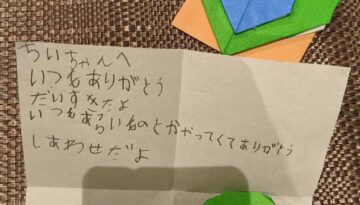 ちいちゃんへ
いつもありがとう
だいすきだよ
いつもあらいものとかやってくてありがとう
しあわせだよ